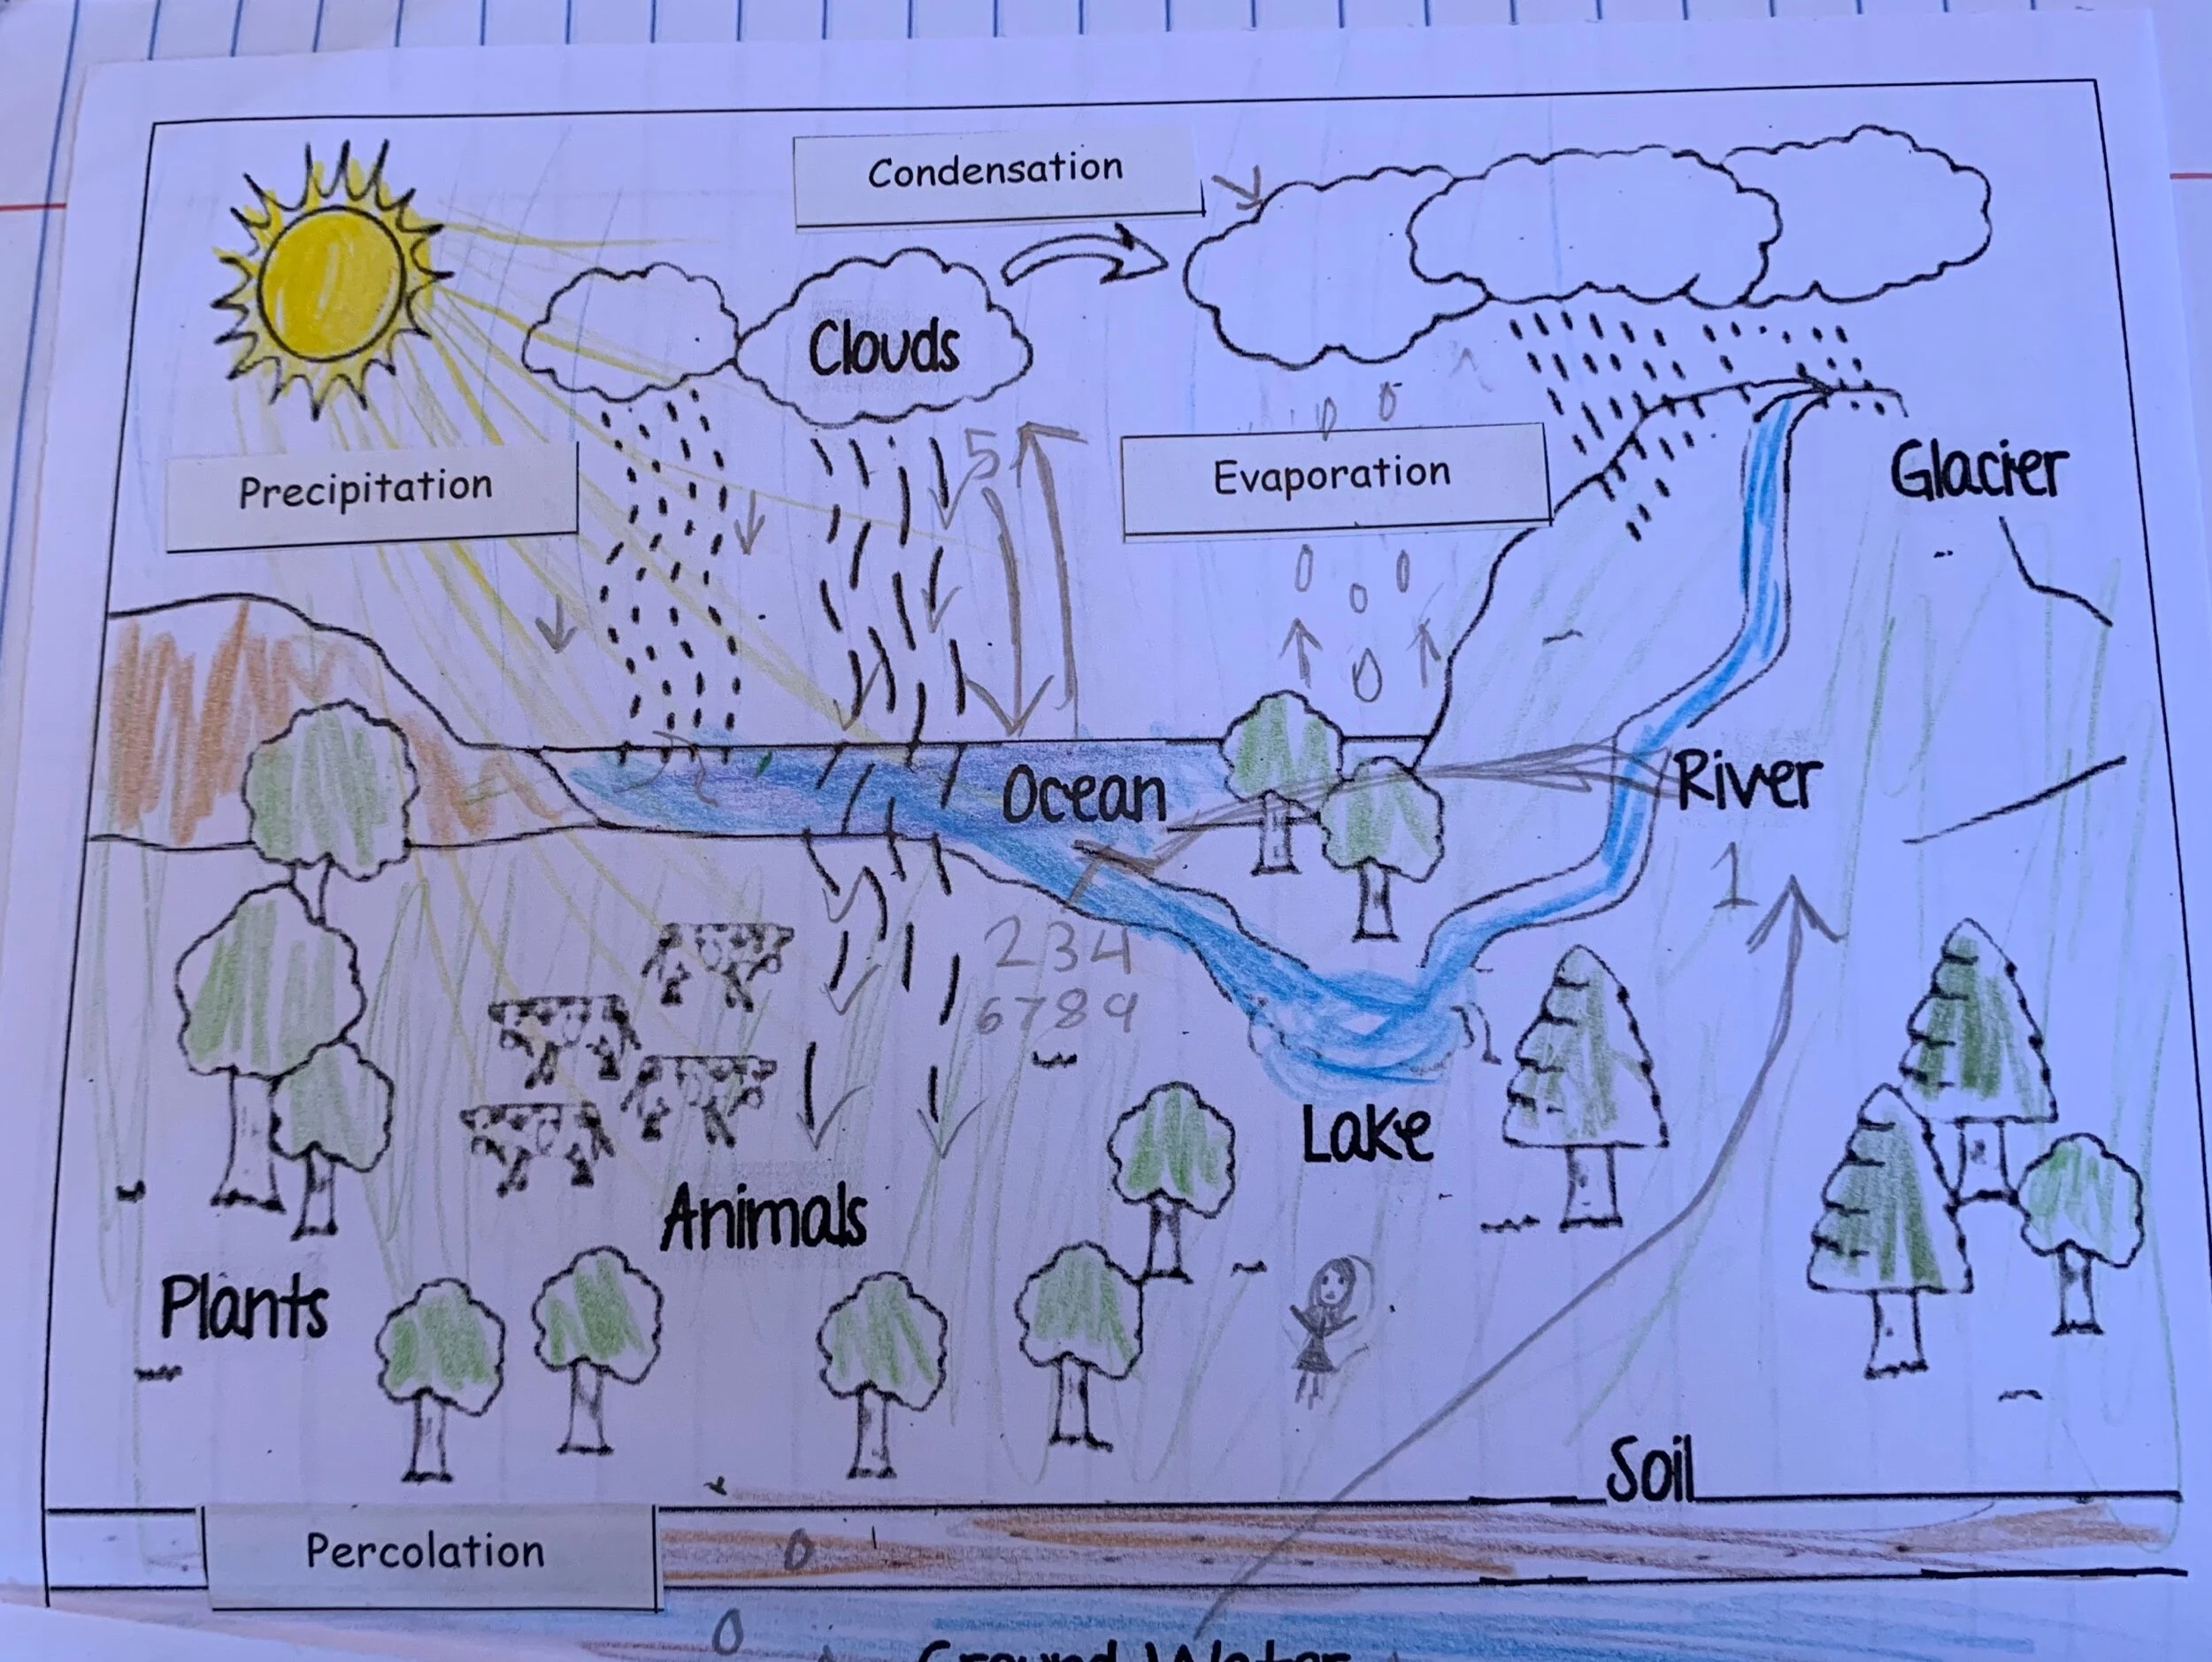 Condensation
Clouds
Precipitation
5
Evaporation
Glacier
Ocean
River
1
2 3 4
6 7 8 9
Lake
Animals
Plants
Soil
Percolation
Ground Water